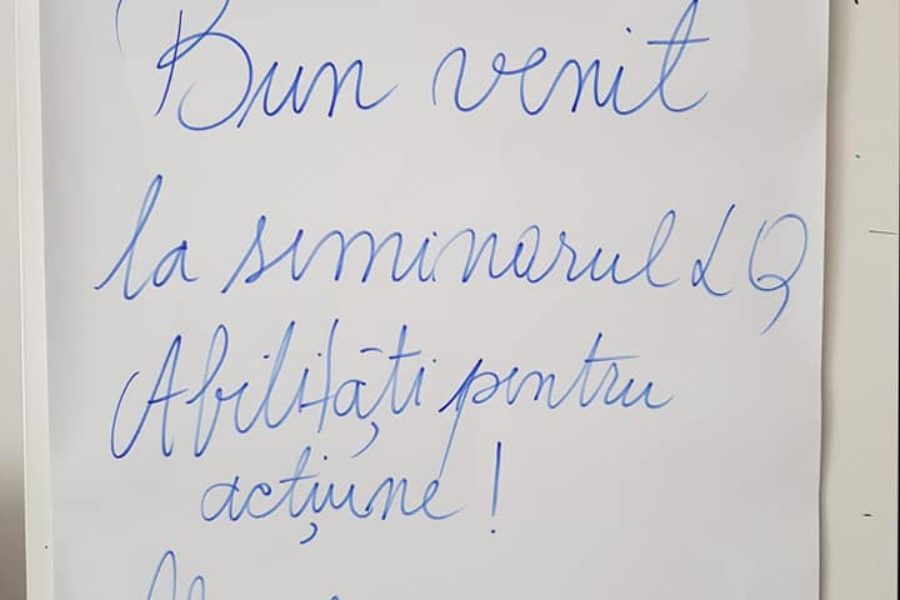 Bun venit
la seminarul LQ
Abilități pentru
acțiune!